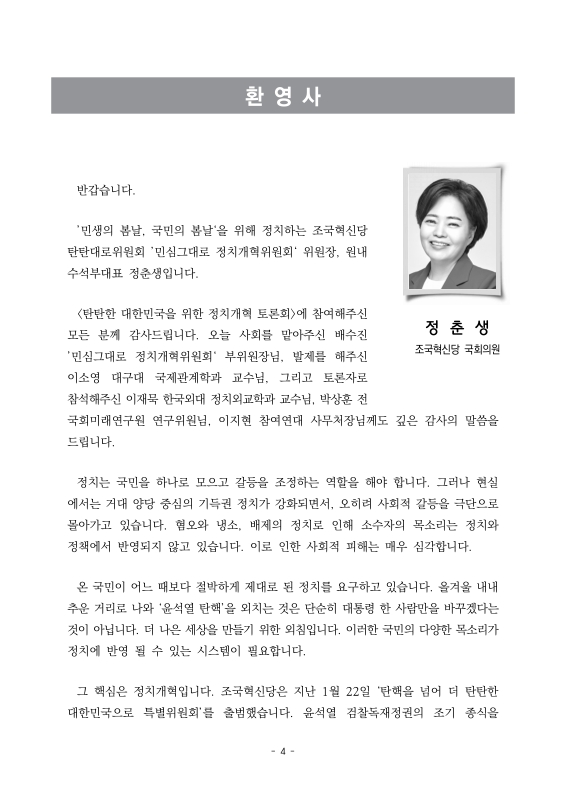 환 영 사
반갑습니다.
'민생의 봄날, 국민의 봄날'을 위해 정치하는 조국혁신당
탄탄대로위원회 '민심그대로 정치개혁위원회' 위원장, 원내
수석부대표 정춘생입니다.
<탄탄한 대한민국을 위한 정치개혁 토론회>에 참여해주신
모든 분께 감사드립니다. 오늘 사회를 맡아주신 배수진
'민심그대로 정치개혁위원회' 부위원장님, 발제를 해주신
이소영 대구대 국제관계학과 교수님, 그리고 토론자로
참석해주신 이재묵 한국외대 정치외교학과 교수님, 박상훈 전
국회미래연구원 연구위원님, 이지현 참여연대 사무처장님께도 깊은 감사의 말씀을
드립니다.
정 춘 생
조국혁신당 국회의원
정치는 국민을 하나로 모으고 갈등을 조정하는 역할을 해야 합니다. 그러나 현실
에서는 거대 양당 중심의 기득권 정치가 강화되면서, 오히려 사회적 갈등을 극단으로
몰아가고 있습니다. 혐오와 냉소, 배제의 정치로 인해 소수자의 목소리는 정치와
정책에서 반영되지 않고 있습니다. 이로 인한 사회적 피해는 매우 심각합니다.
온 국민이 어느 때보다 절박하게 제대로 된 정치를 요구하고 있습니다. 올겨울 내내
추운 거리로 나와 '윤석열 탄핵'을 외치는 것은 단순히 대통령 한 사람만을 바꾸겠다는
것이 아닙니다. 더 나은 세상을 만들기 위한 외침입니다. 이러한 국민의 다양한 목소리가
정치에 반영 될 수 있는 시스템이 필요합니다.
그 핵심은 정치개혁입니다. 조국혁신당은 지난 1월 22일 '탄핵을 넘어 더 탄탄한
대한민국으로 특별위원회'를 출범했습니다. 윤석열 검찰독재정권의 조기 종식을
- 4 -